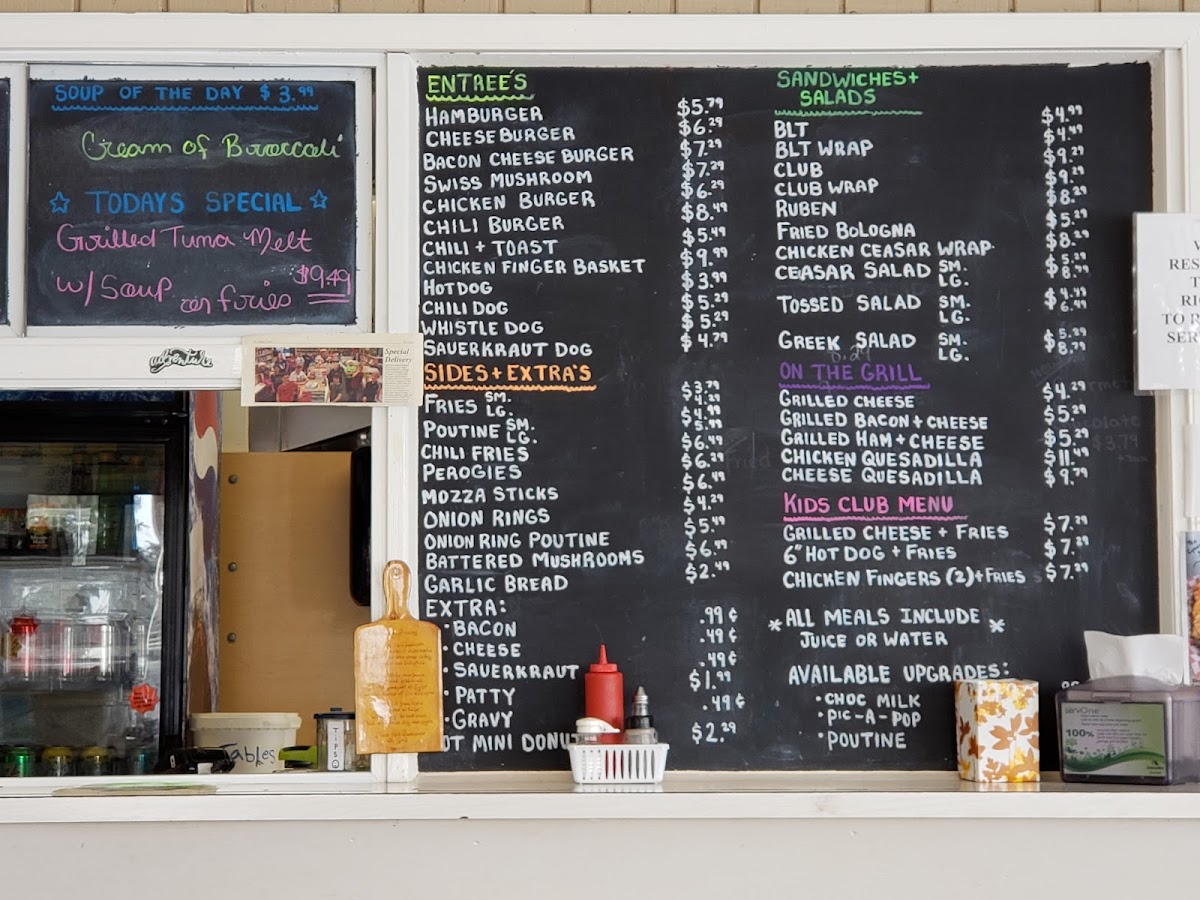 SOUP OF THE DAY $3.99
Cream of Broccoli
☆ TODAYS SPECIAL ☆
Grilled Tuna Melt
w/ Soup or fries $9.49
Special
Delivery
ENTREE'S
HAMBURGER $5.79
CHEESEBURGER $6.29
BACON CHEESE BURGER $7.29
SWISS MUSHROOM $7.29
CHICKEN BURGER $6.29
CHILI BURGER $8.49
CHILI + TOAST $5.49
CHICKEN FINGER BASKET $9.99
HOTDOG $3.99
CHILI DOG $5.29
WHISTLE DOG $5.29
SAUERKRAUT DOG $4.79
SIDES + EXTRA'S
FRIES SM. $3.79
LG. $4.29
POUTINE SM. $4.99
LG. $5.99
CHILI FRIES $6.49
PEROGIES $6.29
MOZZA STICKS $6.49
ONION RINGS $4.29
ONION RING POUTINE $5.49
BATTERED MUSHROOMS $6.49
GARLIC BREAD $2.49
EXTRA:
• BACON .99¢
• CHEESE .49¢
• SAUERKRAUT .49¢
• PATTY $1.99
• GRAVY .49¢
OT MINI DONU $2.29
SANDWICHES +
SALADS
BLT $4.99
BLT WRAP $4.49
CLUB $9.29
CLUB WRAP $9.29
RUBEN $8.29
FRIED BOLOGNA $5.29
CHICKEN CEASAR WRAP $8.29
CEASAR SALAD SM. $5.29
LG. $8.79
TOSSED SALAD SM. $4.49
LG. $6.49
GREEK SALAD SM. $5.39
LG. $8.79
ON THE GRILL
GRILLED CHEESE $4.29
GRILLED BACON + CHEESE $5.29
GRILLED HAM + CHEESE $5.29
CHICKEN QUESADILLA $11.49
CHEESE QUESADILLA $9.79
KIDS CLUB MENU
GRILLED CHEESE + FRIES $7.29
6" HOT DOG + FRIES $7.29
CHICKEN FINGERS (2) + FRIES $7.29
* ALL MEALS INCLUDE *
JUICE OR WATER
AVAILABLE UPGRADES:
• CHOC MILK
• PIC-A-POP
• POUTINE
RES
T
RI
TO R
SER
Tables
TIPS
100%